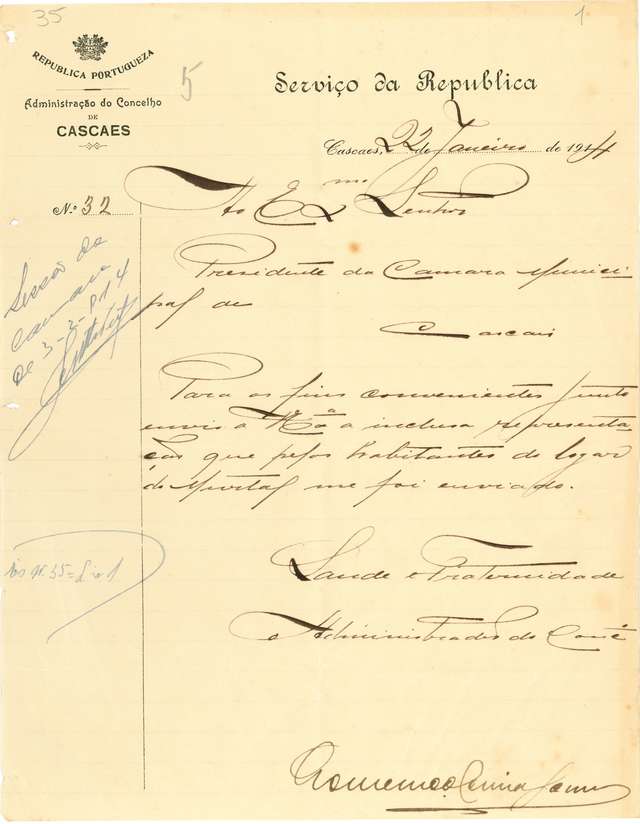 35
1
5
REPUBLICA PORTUGUEZA
Administração do Concelho
DE
CASCAES
Serviço da Republica
Cascaes, 22 de Janeiro de 1914
N.º 32
Ao Exmo Senhor
Presidente da Camara Munici-
pal de
Cascais
Sessão da
camara
de 3-2-914
Para os fins convenientes junto
envio a V. Exª a inclusa representa-
ção que pelos habitantes do logar
do Murtal me foi enviado.
Saude e Fraternidade
O Administrador do Conc.º